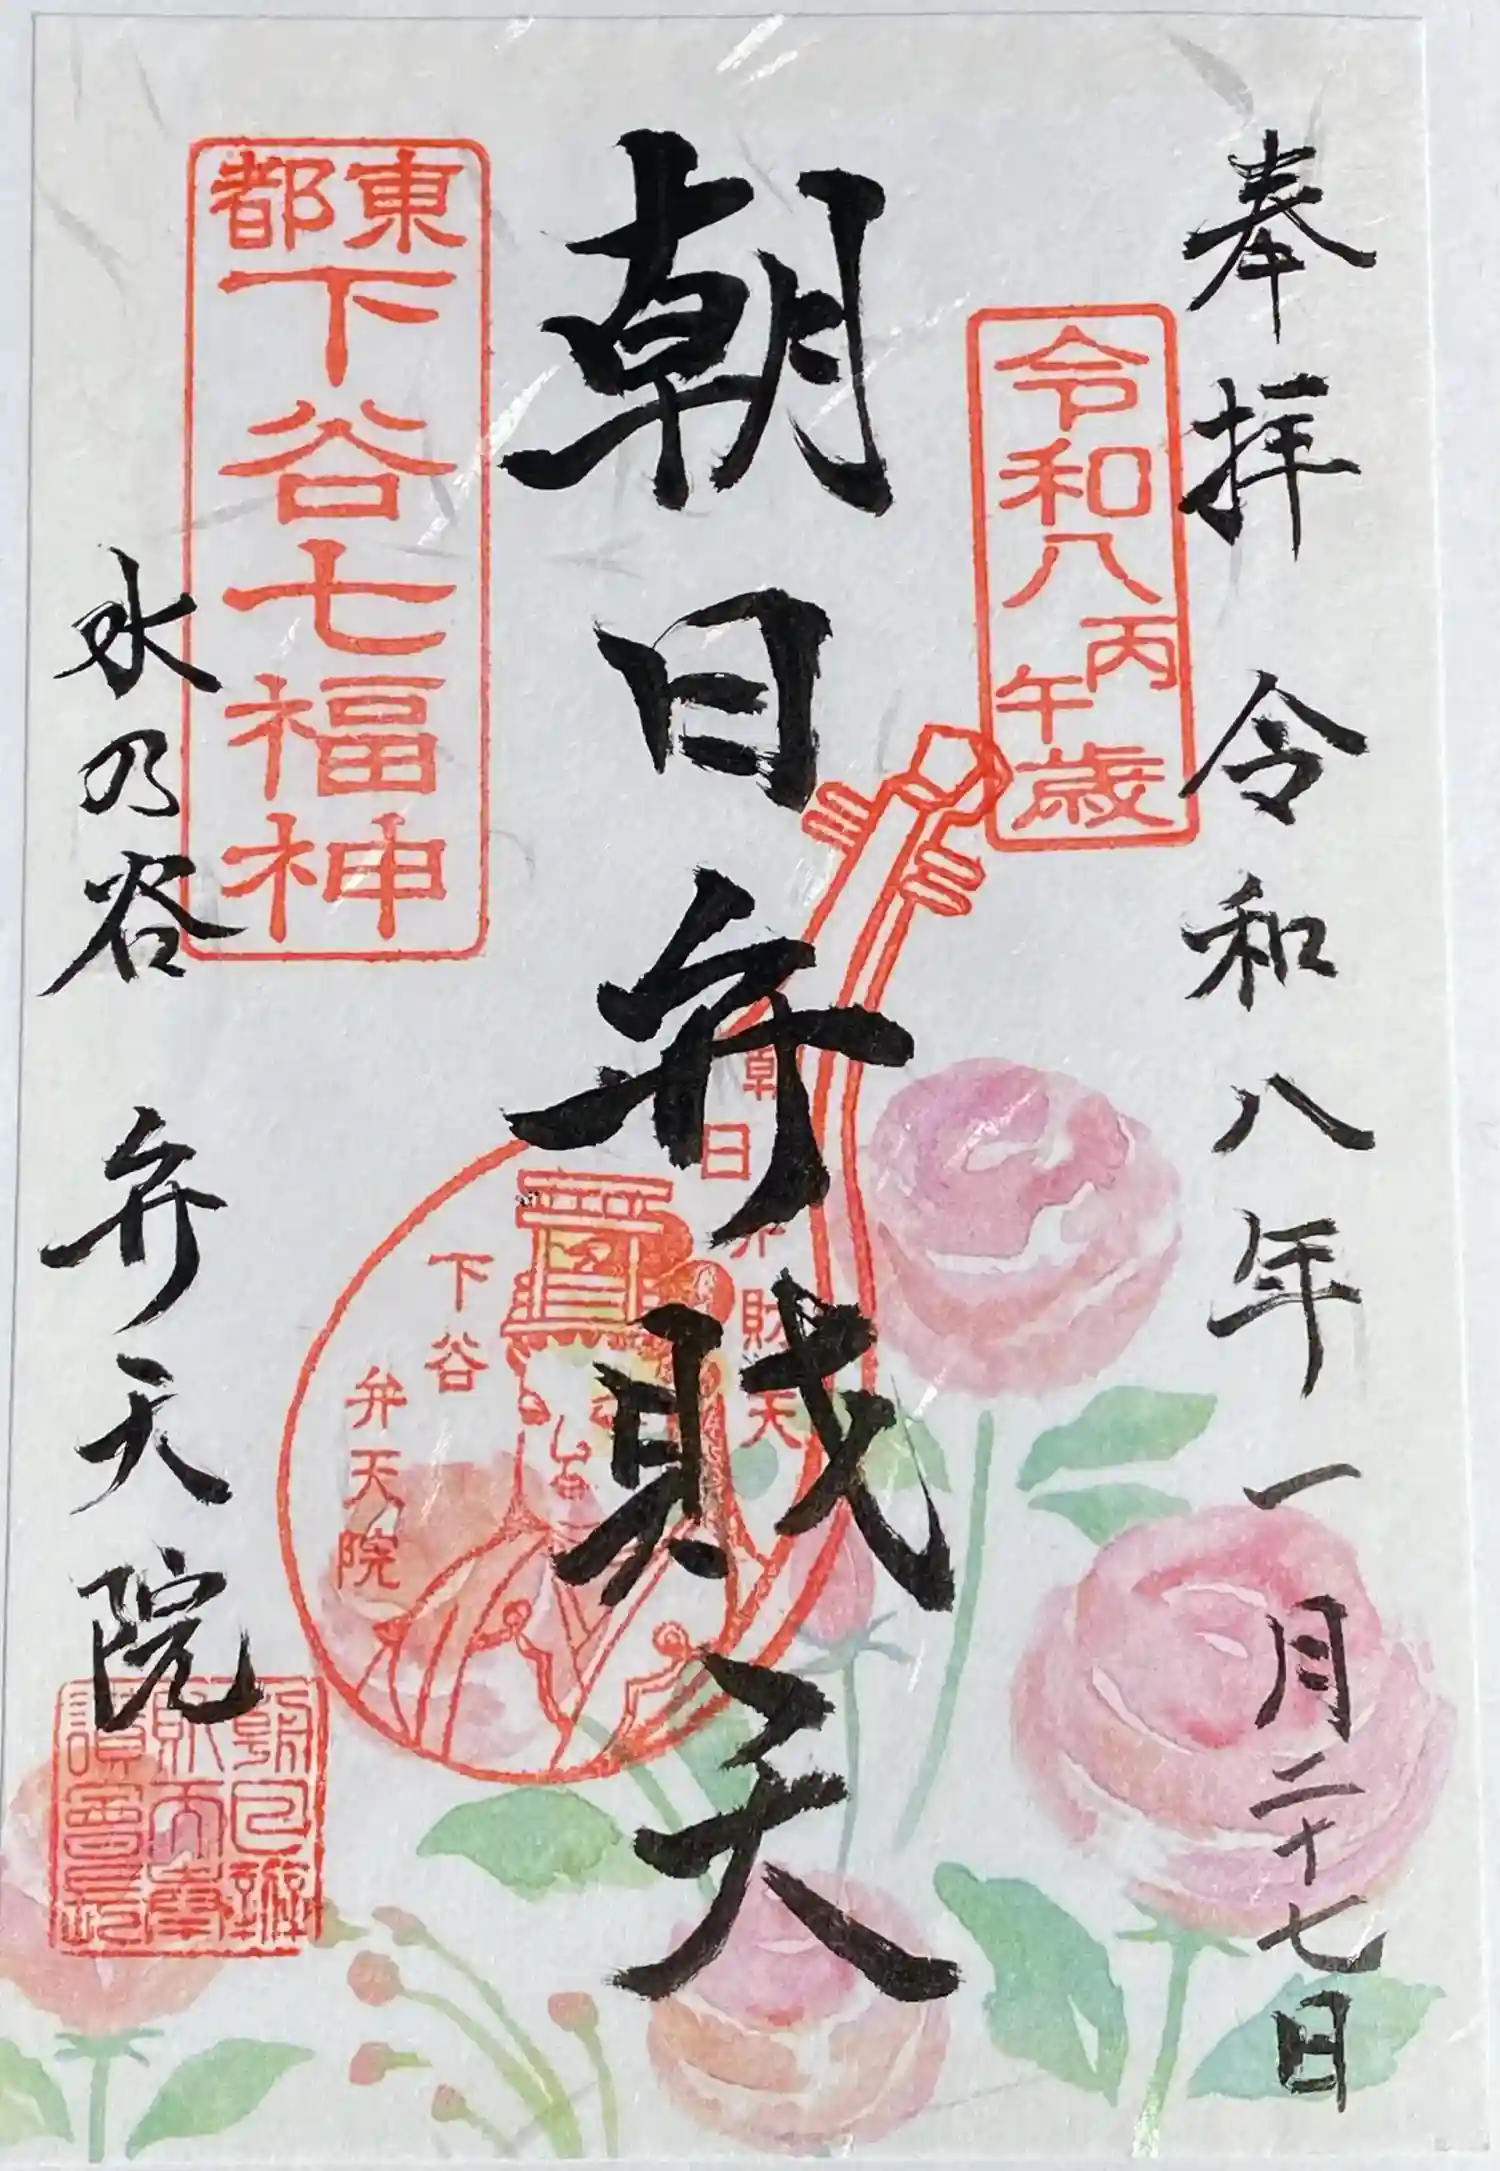 奉拝 令和八年一月二十七日
令和八丙午歳
朝日弁財天
朝日弁財天
東都下谷七福神
下谷
弁天院
水の谷 弁天院